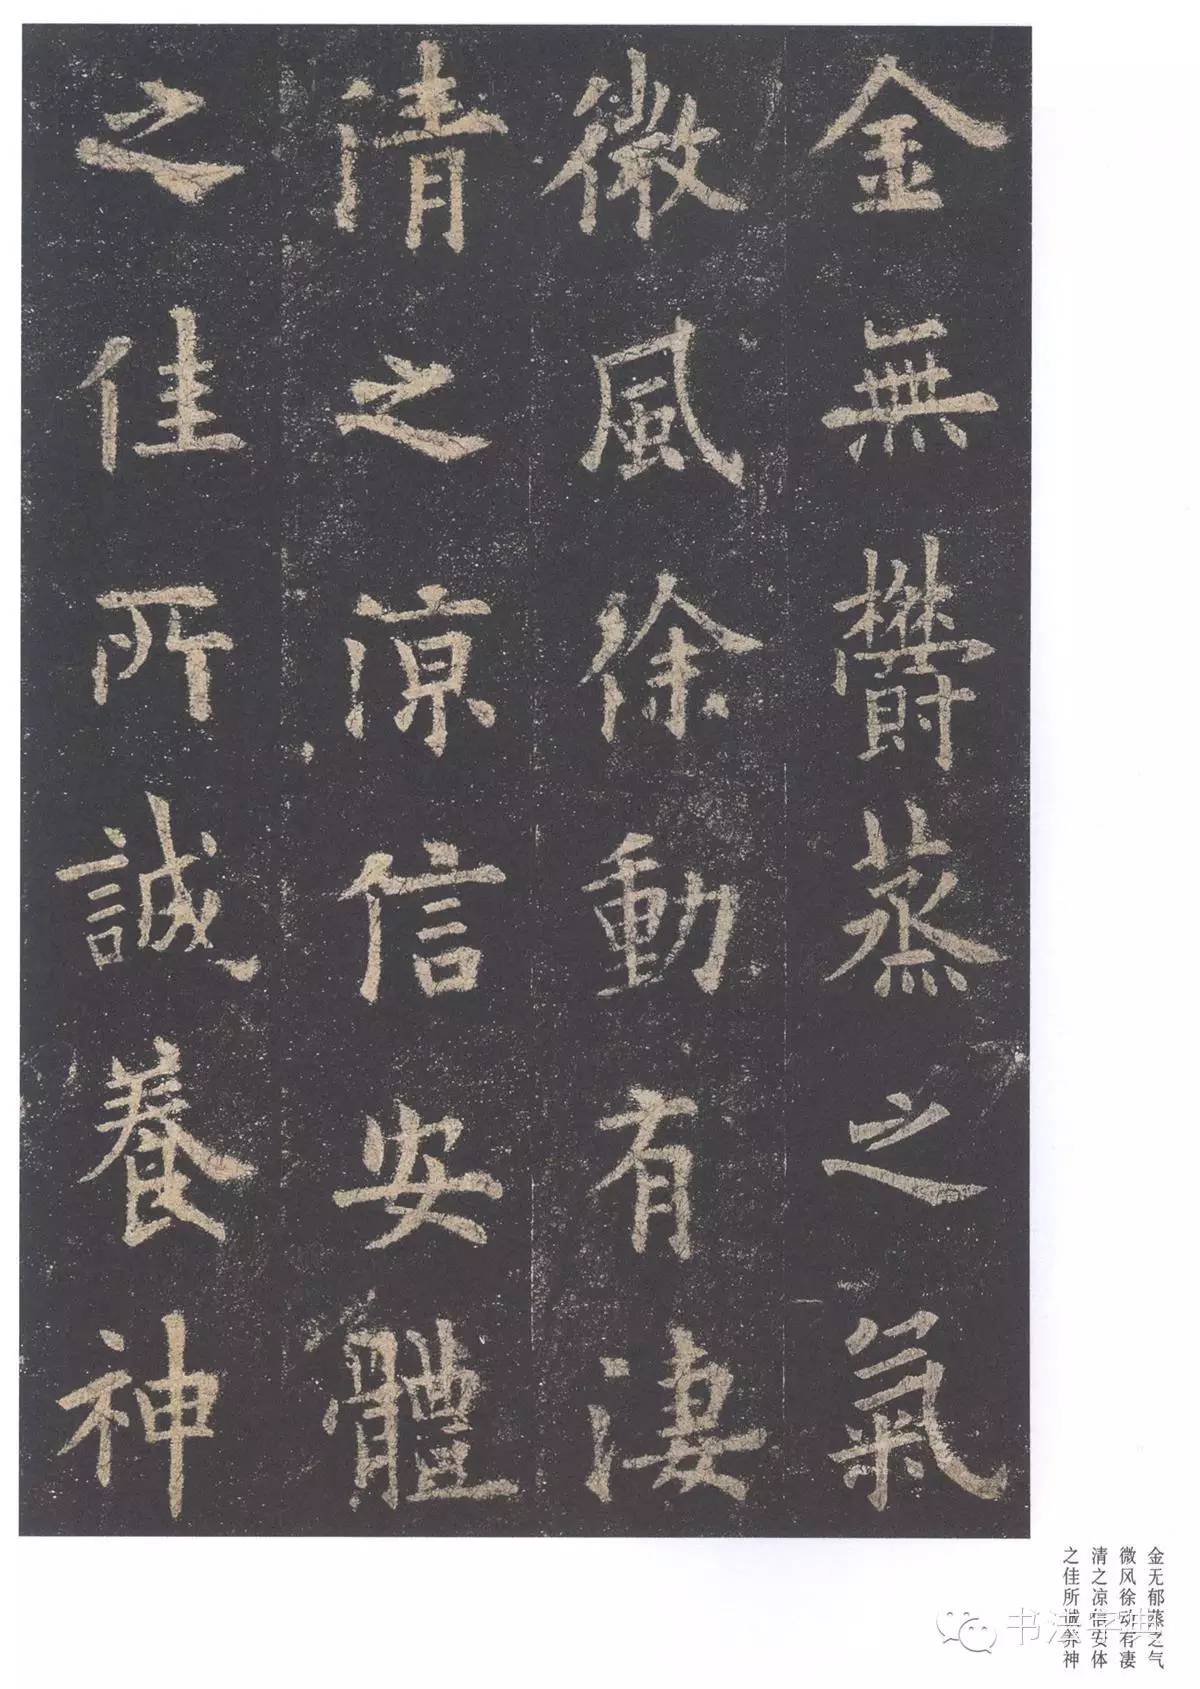 金無欝蒸之氣
微風徐動有淒
清之涼信安體
之佳所誠養神
金无郁蒸之气
微风徐动有凄
清之凉信安体
之佳所诚养神
书法字典